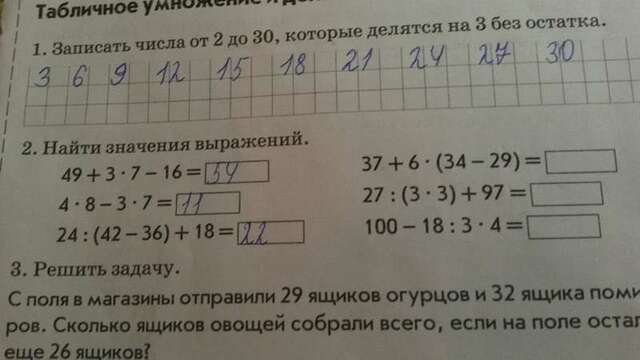 Табличное умножение и
1. Записать числа от 2 до 30, которые делятся на 3 без остатка.
3 6 9 12 15 18 21 24 27 30
2. Найти значения выражений.
49 + 3 · 7 − 16 = 54
4 · 8 − 3 · 7 = 11
24 : (42 − 36) + 18 = 22
37 + 6 · (34 − 29) =
27 : (3 · 3) + 97 =
100 − 18 : 3 · 4 =
3. Решить задачу.
С поля в магазины отправили 29 ящиков огурцов и 32 ящика поми
ров. Сколько ящиков овощей собрали всего, если на поле остал
еще 26 ящиков?